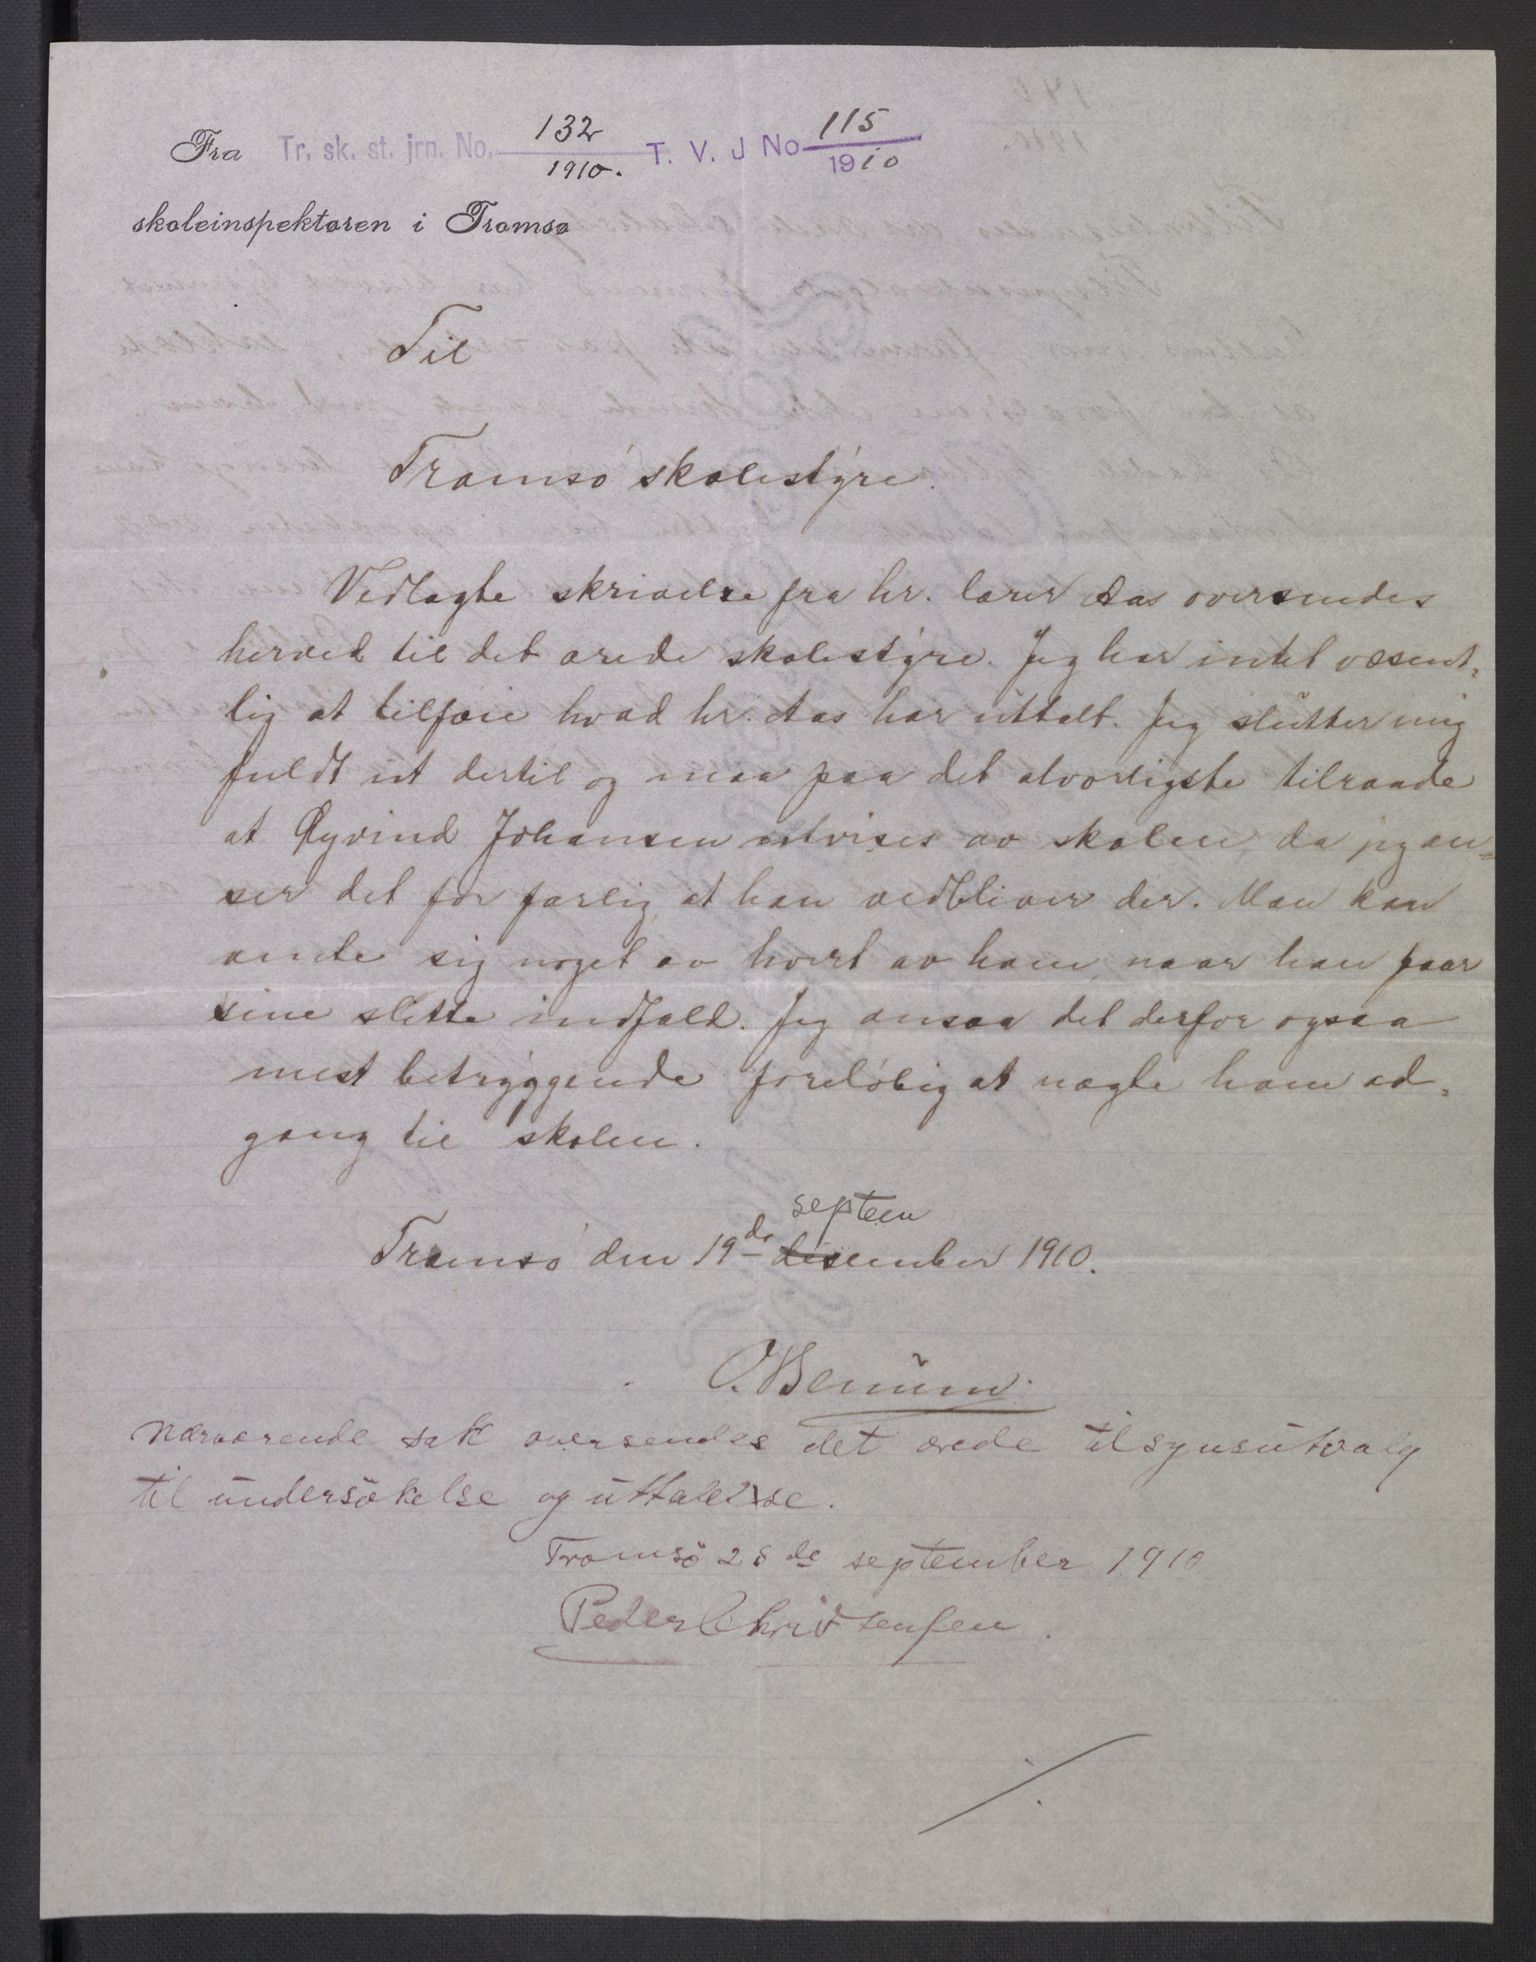 Fra Tr. sk. st. jrn. No. 132/1910. T. V. J No 115/1910
skoleinspektøren i Tromsø
Til
Tromsø skolestyre.
Vedlagte skrivelse fra hr. lærer Aas oversendes
herved til det ærede skolestyre. Jeg har intet væsent-
lig at tilføie hvad hr. Aas har uttalt. Jeg slutter mig
fuldt ut dertil og maa paa det alvorligste tilraade
at Øyvind Johansen utvises av skolen, da jeg an=
ser det for farlig, at han vedbliver der. Man kan
vente sig noget av hvert av ham, naar han faar
sine slette indfald. Jeg ansaa det derfor ogsaa
mest betryggende foreløbig at nægte ham ad-
gang til skolen.
septem
Tromsø den 19de desember 1910.
Nærværende sak oversendes det ærede tilsynsutvalg
til undersøkelse og uttalelse.
Tromsø 28de september 1910
Peder Christensen.
./.